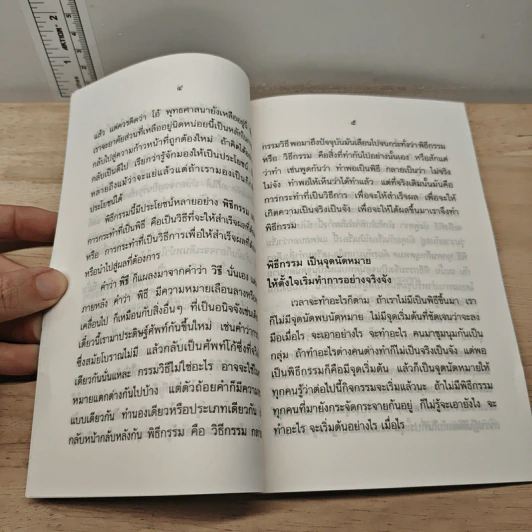 ๔
แล้ว แต่ควรคิดว่า โอ้ พุทธศาสนายังเหลืออยู่นี้
เราจะอาศัยส่วนที่เหลืออยู่นิดหน่อยนี้เป็นหลักใน
กลับไปสู่ความก้าวหน้าที่ถูกต้องใหม่ ถ้าคิดได้
กลับเป็นดีไป เรียกว่ารู้จักมองให้เป็นประโยชน์
หลายถึงแม้ว่าจะแย่แล้วแต่ถ้าเรามองเป็น
ประโยชน์ได้
พิธีกรรมนี้มีประโยชน์หลายอย่าง พิธีกรรม
การกระทำที่เป็นพิธี คือเป็นวิธีที่จะให้สำเร็จผลที่
หรือ การกระทำที่เป็นวิธีการเพื่อจะให้สำเร็จผลที่ต้อง
หรือนำไปสู่ผลที่ต้องการ
คำว่า พิธี ก็แผลงมาจากคำว่า วิธี นั่นเอง แต่
ภายหลัง คำว่า พิธี มีความหมายเลือนลางหรือ
เคลื่อนไป ก็เหมือนกับสิ่งอื่นๆ ที่เป็นอนิจจังเช่น
เดี๋ยวนี้เรามาประดิษฐ์ศัพท์กันขึ้นใหม่ เช่นคำว่า
ซึ่งสมัยโบราณไม่มี แล้วกลับเป็นศัพท์โก้ซึ่งที่จริง
เดียวกันนั่นแหละ กรรมวิธีไม่ใช่อะไร อาจจะใช้
หมายแตกต่างกันไปบ้าง แต่ตัวถ้อยคำก็มีความ
แบบเดียวกัน ทำนองเดียวหรือประเภทเดียวกัน
กลับหน้ากลับหลังกัน พิธีกรรม คือ วิธีกรรม
๕
กรรมวิธี พอมาถึงปัจจุบันมันเลือนไปจนกระทั่งว่าพิธีกรรม
หรือ วิธีกรรม คือสิ่งที่ทำกันไปอย่างนั่นเอง หรือสักแต่
ว่าทำ เช่นพูดกันว่า ทำพอเป็นพิธี กลายเป็นว่า ไม่จริง
ไม่จัง ทำพอให้เห็นว่าได้ทำแล้ว แต่ที่จริงเดิมนั้นมันคือ
การกระทำที่เป็นวิธีการ เพื่อจะให้สำเร็จผล เพื่อจะให้
เกิดความเป็นจริงเป็นจัง เพื่อจะให้ได้ผลขึ้นมาเราจึงทำ
พิธีกรรม
พิธีกรรม เป็นจุดนัดหมาย
ให้ตั้งใจเริ่มทำการอย่างจริงจัง
เวลาจะทำอะไรก็ตาม ถ้าเราไม่มีเป็นพิธีขึ้นมา เรา
ก็ไม่มีจุดนัดพบนัดหมาย ไม่มีจุดเริ่มต้นที่ชัดเจนว่าจะลง
มือเมื่อไร จะเอาอย่างไร จะทำอะไร คนมาชุมนุมกันเป็น
กลุ่ม ถ้าทำอะไรต่างคนต่างทำก็ไม่เป็นจริงเป็นจัง แต่พอ
เป็นพิธีกรรมก็คือมีจุดเริ่มต้น แล้วก็เป็นจุดนัดหมายให้
ทุกคนรู้ว่าต่อไปนี้กิจกรรมจะเริ่มแล้วนะ ถ้าไม่มีพิธีกรรม
ทุกคนที่มายังกระจัดกระจายกันอยู่ ก็ไม่รู้จะเอายังไง จะ
ทำอะไร จะเริ่มต้นอย่างไร เมื่อไร